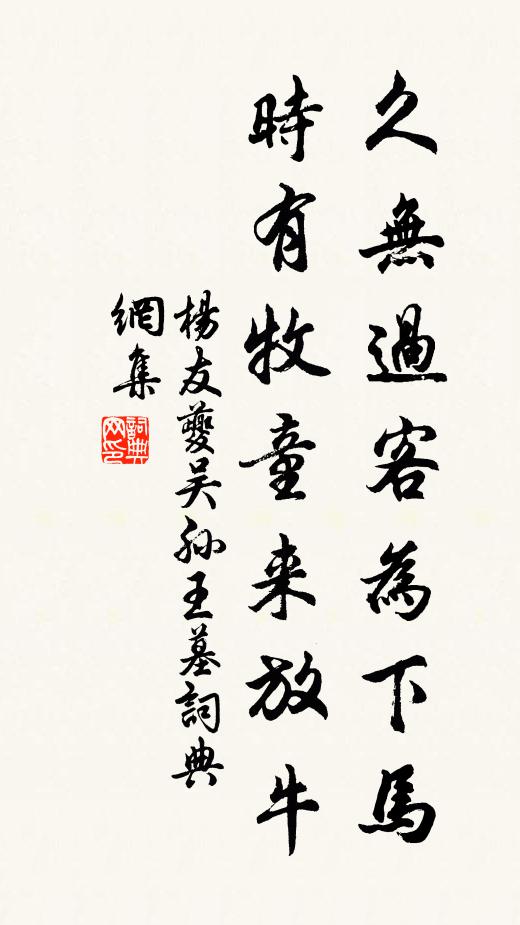 久無過客為下馬
時有牧童来放牛
楊友夔吴孙王墓詞典
網集
詞典
网印